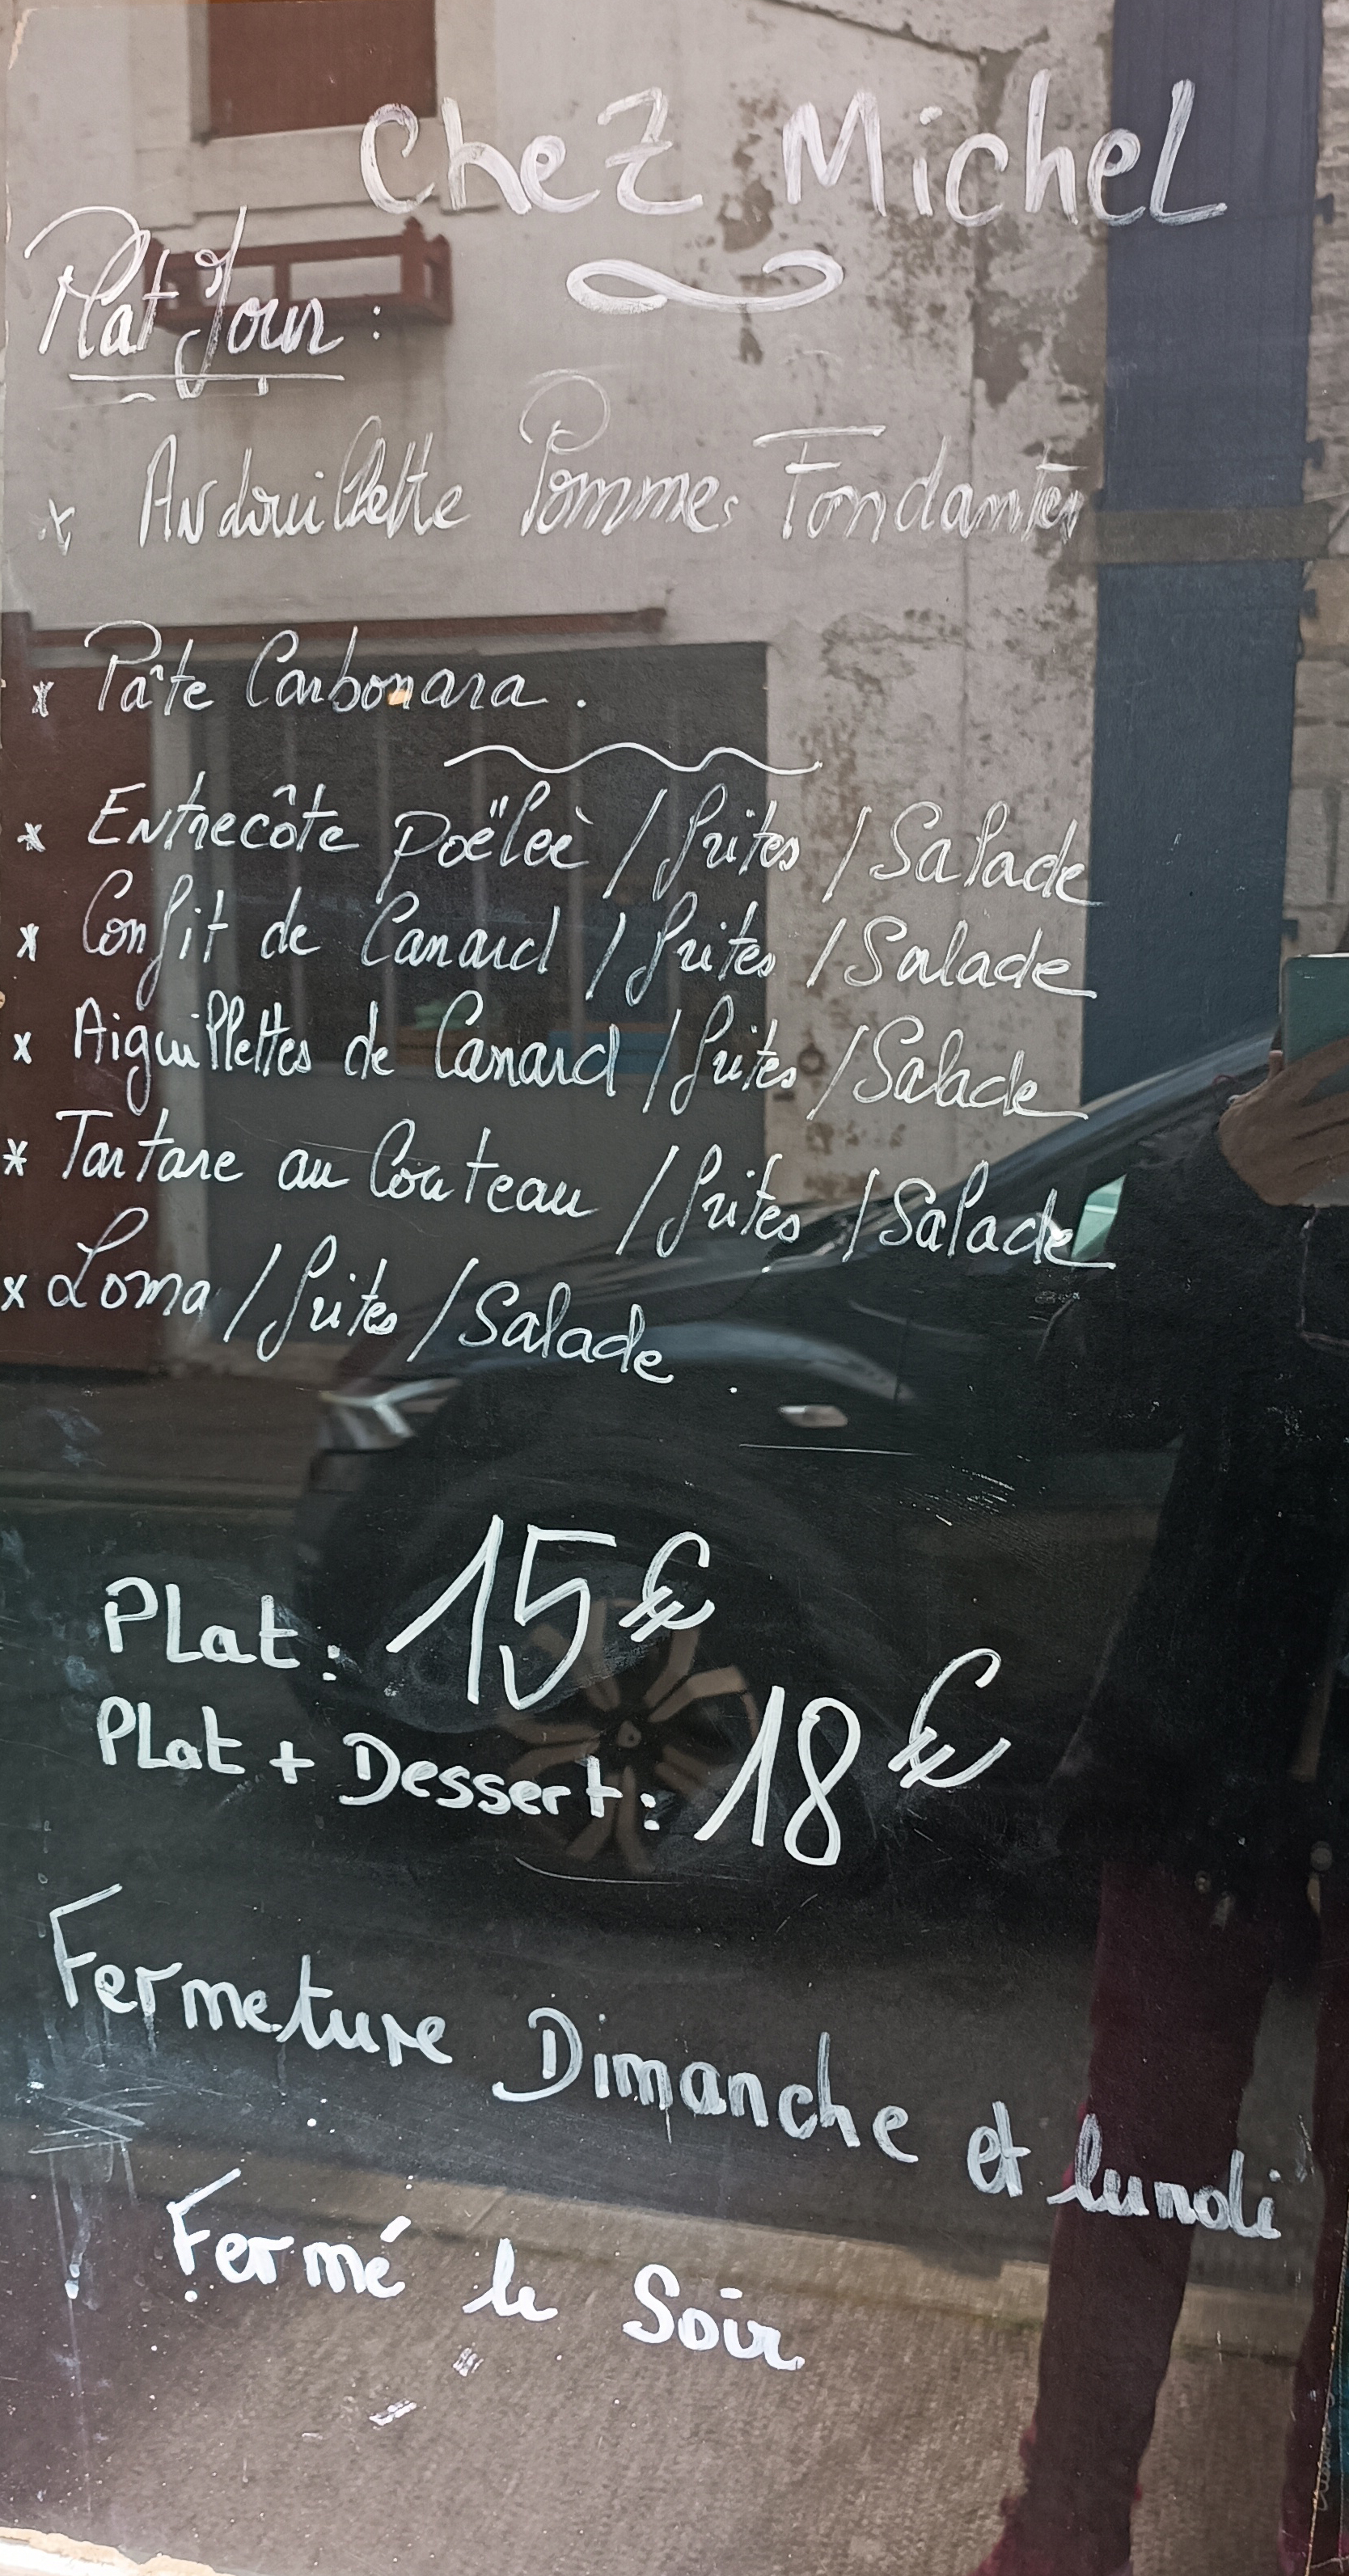 Chez Michel
Plat Jour :
x Andouillette Pommes Fondantes
x Pâte Carbonara.
x Entrecôte poëleè / frites / Salade
x Confit de Canard / frites / Salade
x Aiguillettes de Canard / frites / Salade
x Tartare au Couteau / frites / Salade
x Loma / frites / Salade.
Plat : 15€
Plat + Dessert : 18€
Fermeture Dimanche et lundi
Fermé le Soir